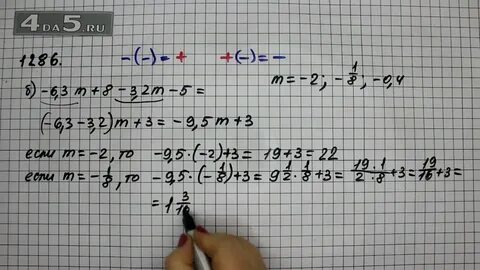 4DA5.RU
1286. -(-)=+ +(-)=-
m=-2; -1/8; -0,4
б) -6,3m+8-3,2m-5=
(-6,3-3,2)m+3=-9,5m+3
если m=-2, то -9,5·(-2)+3=19+3=22
если m=-1/8, то -9,5·(-1/8)+3=9 1/2·1/8+3=19·1/2·8+3=19/16+3=
=1 3/16